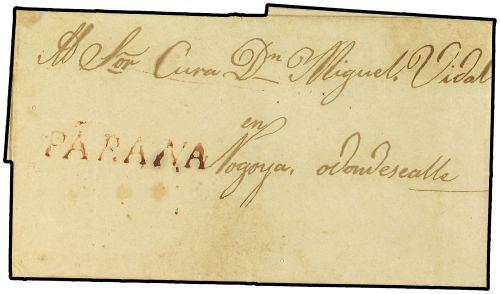 Al Sor Cura Dn Miguel Vidal
en
PARANA Nogoya, odondesealle